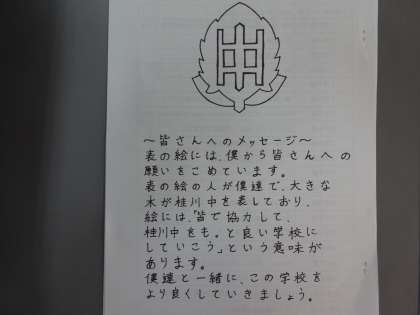 〜皆さんへのメッセージ〜
表の絵には、僕から皆さんへの
願いをこめています。
表の絵の人が僕達で、大きな
木が桂川中を表しており、
絵には、「皆で協力して、
桂川中をもっと良い学校に
していこう」という意味が
あります。
僕達と一緒に、この学校を
より良くしていきましょう。